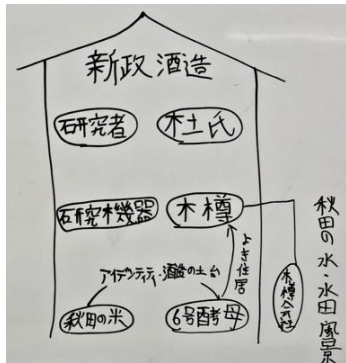 新政酒造
研究者
杜氏
研究機器
木樽
よき住居
アイデンティティ・酒造の土台
秋田の米
6号酵母
木樽会社
秋田の水・水田風景